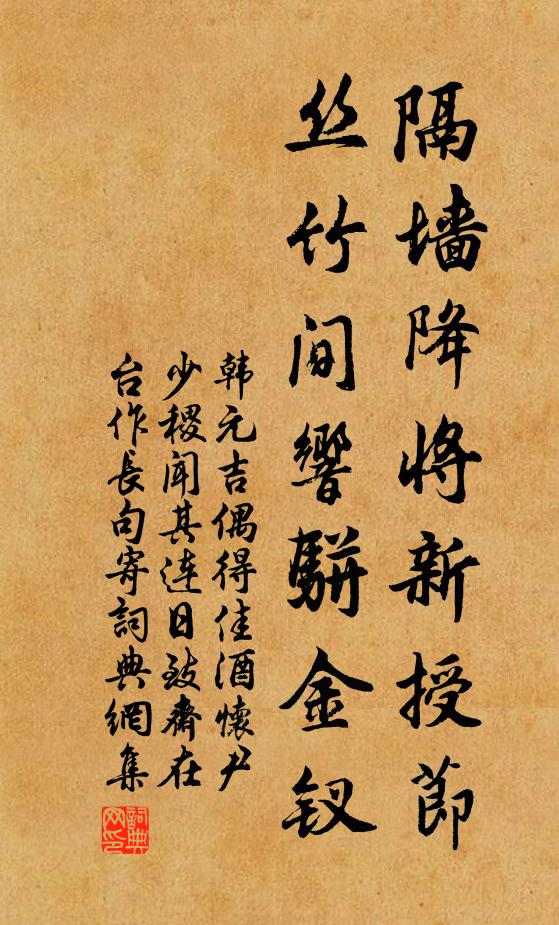 隔墙降将新授節
丝竹间響駢金钗
韩元吉偶得佳酒懷尹
少稷闻其连日致齋在
台作長句寄詞典網集
詞典网印